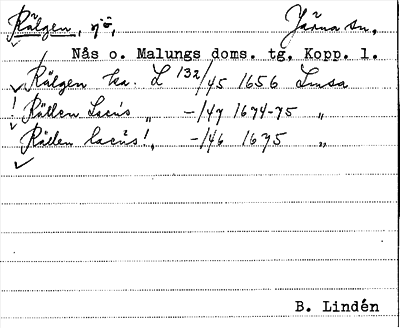 Rälgen, sjö, Järna sn,
Nås o. Malungs doms. tg, Kopp. l.
Rälgen ka. L 132/45 1656 Lmsa
! Rällen Lacus " -/47 1674-75 "
Rällen lacus!, -/46 1675 "
B. Lindén